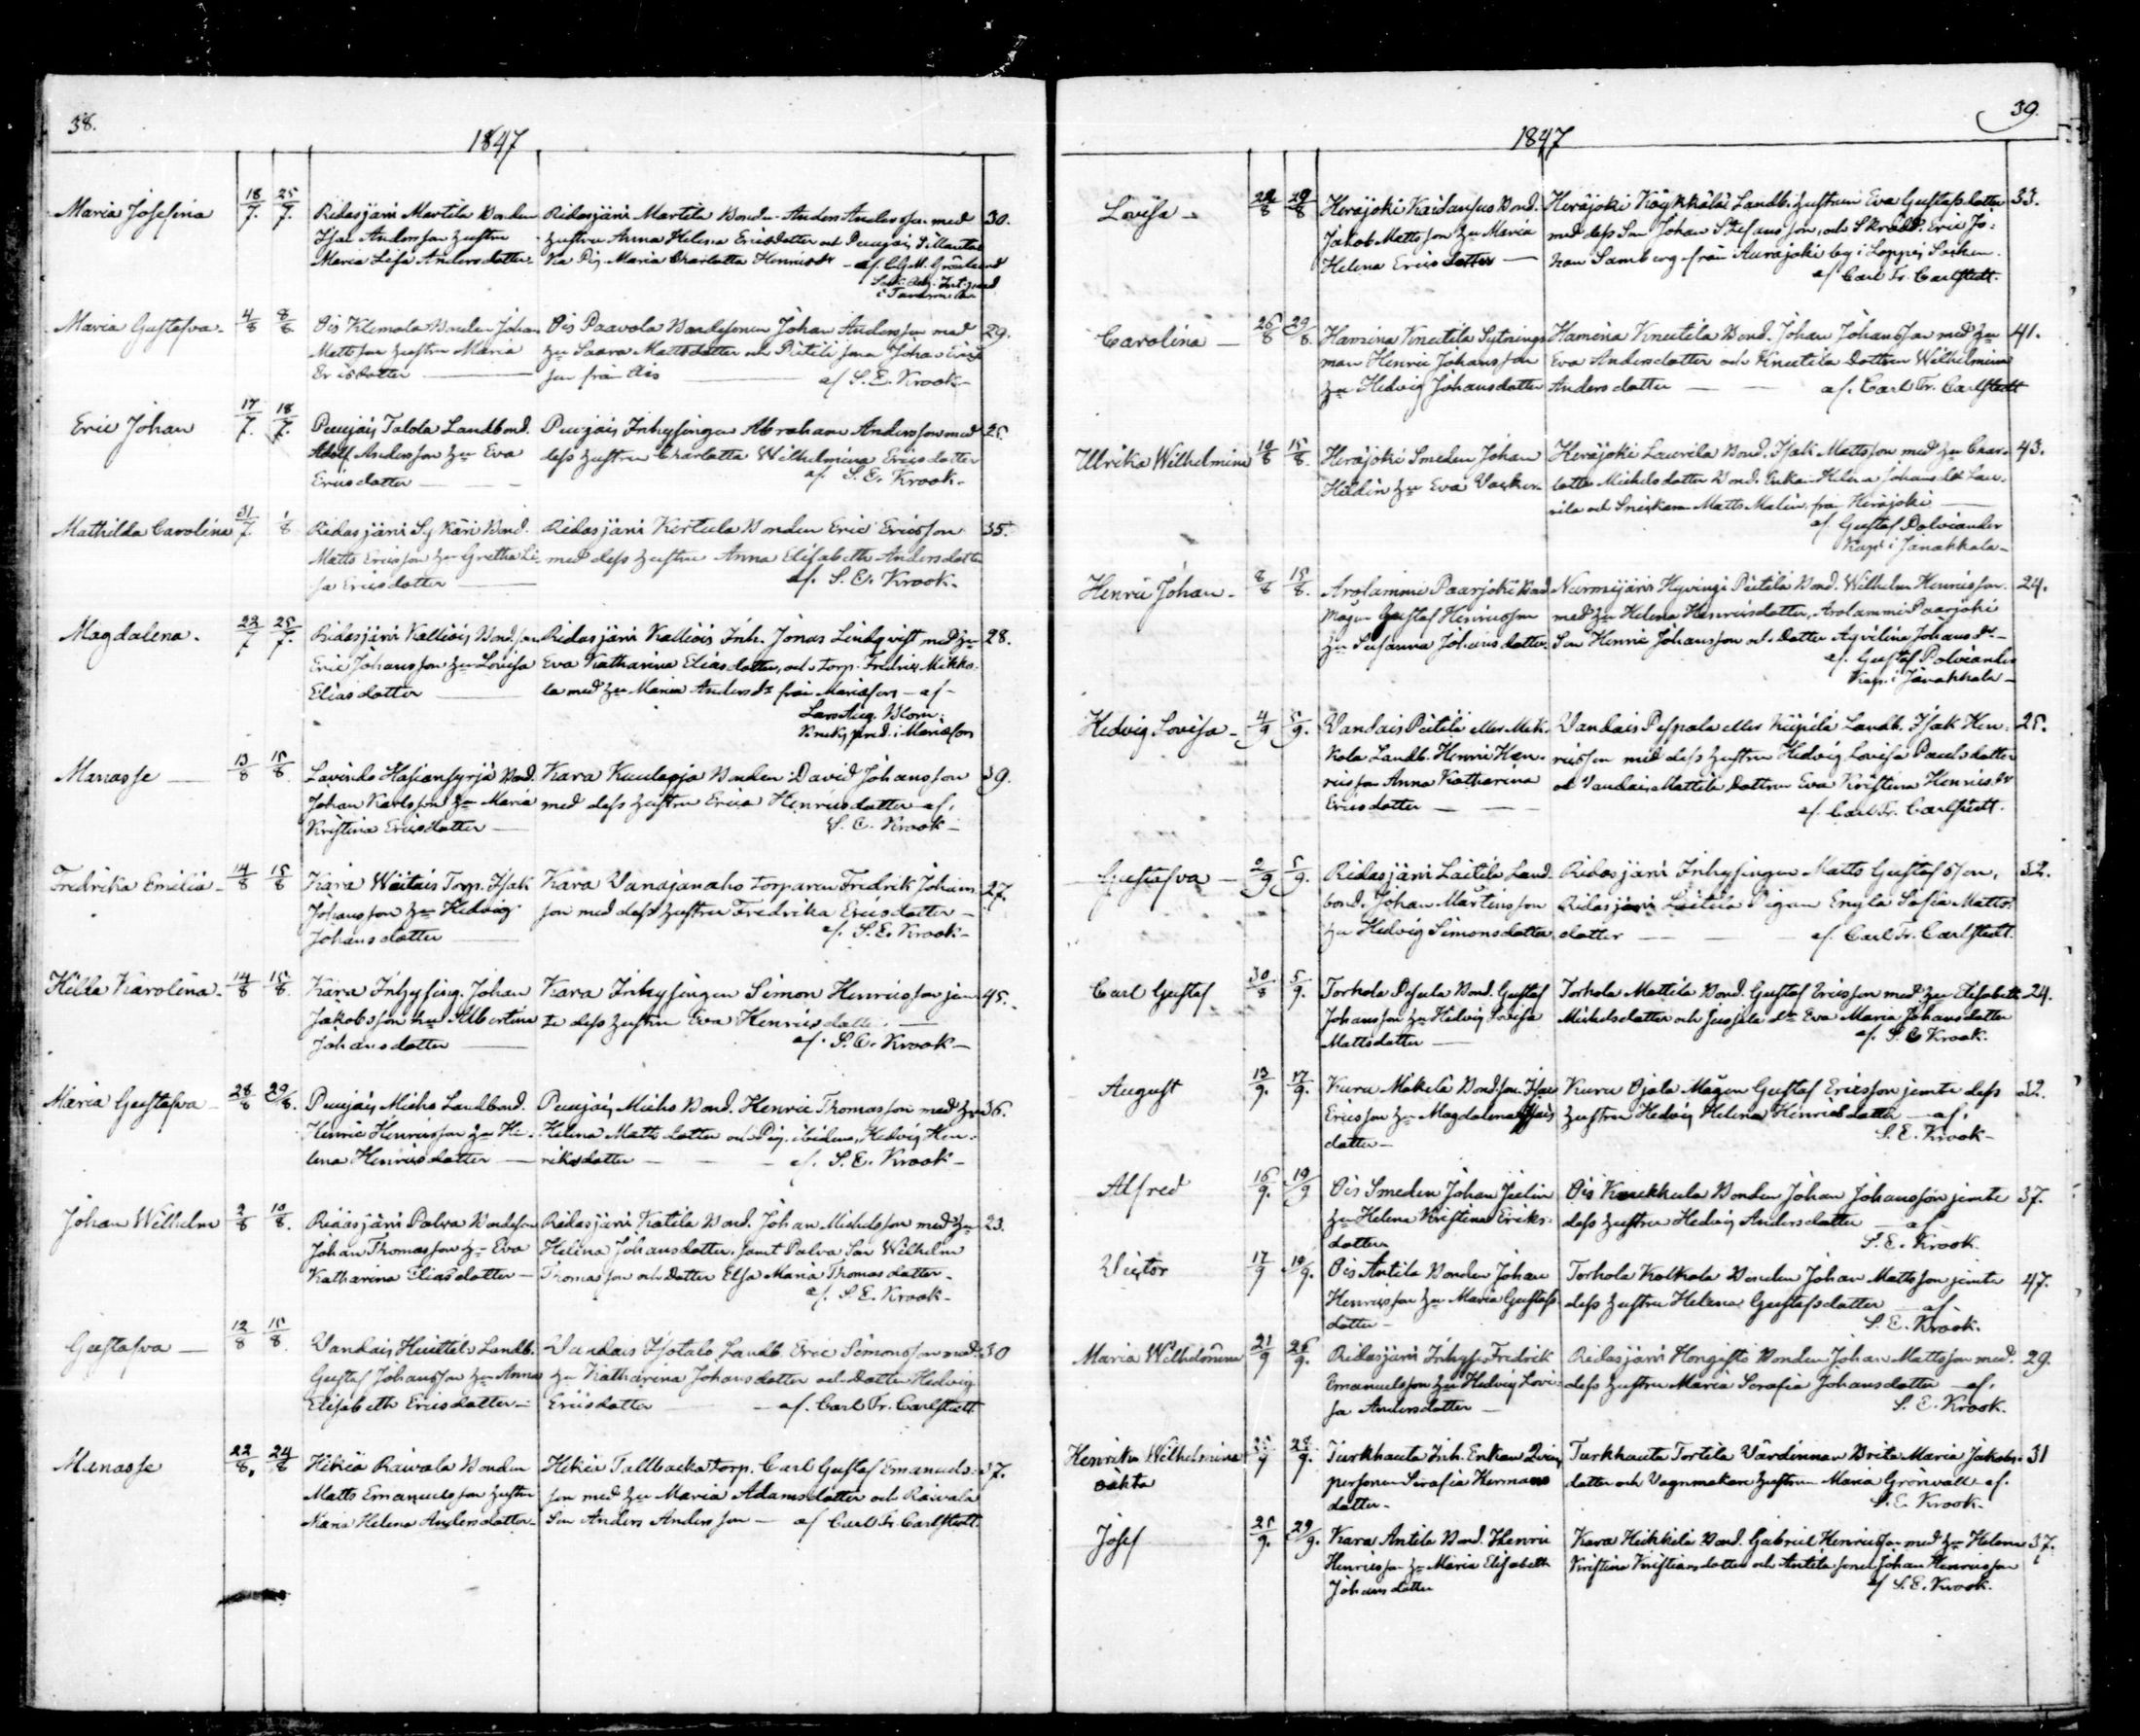 38.
1847
Maria Josefina 18/7. 25/7. Ridasjärvi Martila Bonden Ridasjärvi Martila Bonden Anders Andersson med 30.
Isac Andersson hustru hustru Anna Helena Ericsdotter och Punjais
Maria Lisa Andersdotter. Pig. Maria Charlotta Henricsdr – af. C.G.M. Grönlund
Maria Gustafva. 4/8 8/8 Ois Klemola Bonden Johan Ois Paavola Bondesonen Johan Andersson med 29.
Mattsson hustru Maria hu Saara Mattsdotter och Pietilä sonen Johan Erics
Ericsdotter son från Ois af S. E. Krook.
Eric Johan 17/7. 18/7. Punjais Talola Landbond. Punjais Inhysingen Abraham Andersson med 25.
Adolf Andersson hu Eva dess hustru Charlotta Wilhelmina Ericsdotter
Ericsdotter af S. E. Krook.
Mathilda Carolina 31/7. 1/8 Ridasjärvi Sykäri Bond. Ridasjärvi Kertula Bonden Eric Ericsson 35.
Matts Ericsson hu Gretha Li- med dess hustru Anna Elisabeth Andersdotter
sa Ericsdotter af. S. E. Krook.
Magdalena. 22/7 25/7. Ridasjärvi Kalliois Bond. son Ridasjärvi Kalliois Inh. Jonas Lindqvist med hu 28.
Eric Johansson hu Lovisa Eva Katharina Eliasdotter, och torp. Fredric Mikko-
Eliasdotter la med hu Maria Andersdr från Mariefors – af –
Lars Aug. Blom.
Bruks pred. i Mariefors
Manasse 13/8 15/8 Lavindo Hasiansyrjä Bond. Kara Kuulapja Bonden David Johansson 39.
Johan Karlsson hu Maria med dess hustru Erica Henricsdotter af.
Kristina Ericsdotter S. E. Krook
Fredrika Emilia 14/8 15/8 Kara Wäitäis Torp. Isak Kara Vanajanaho torparen Fredrik Johans- 27.
Johansson hu Hedvig son med dess hustru Fredrika Ericsdotter
Johansdotter af. S. E. Krook
Hilda Karolina. 14/8 15/8. Kara Inhysing. Johan Kara Inhysingen Simon Henricsson jem- 45.
Jakobsson hu Albertina te dess hustru Eva Henricsdotter
Johansdotter af. S. E. Krook
Maria Gustafva 28/8 29/8. Punjais Micho Landbond. Punjais Micho Bond. Henric Thomasson med hu 36.
Henric Henricsson hu He- Helena Mattsdotter och Pig. ibidem, Hedvig Hen-
lena Henricsdotter riksdotter af. S. E. Krook
Johan Wilhelm 2/8 10/8. Ridasjärvi Palva Bondeson Ridasjärvi Katila Bond. Johan Michelsson med hu 23.
Johan Thomasson hu Eva Helena Johansdotter. samt Palva Son Wilhelm
Katharina Eliasdotter Thomasson och Dotter Elsa Maria Thomasdotter.
af. S. E. Krook
Gustafva 12/8 15/8. Vandais Huittila Landb. Vandais Isotalo Landb. Eric Simonsson med 30
Gustaf Johansson hu Anna hu Katharina Johansdotter och Dotter Hedvig
Elisabeth Ericsdotter Ericsdotter af. Carl Fr. Carlstedt
Manasse 22/8. 24/8 Hikiä Raivala Bonden Hikiä Tallbacka torp. Carl Gustaf Emanuels- 37.
Matts Emanuelsson hustru son med hu Maria Adamsdotter och Raivala
Maria Helena Andersdotter. Son Anders Andersson af Carl Fr. Carlstedt.
39.
1847
Lovisa 29/8 Herajoki Kaidansuo Bond. Herajoki Käykkälä Landb. hustrun Eva Gustafsdotter 33.
Jakob Mattsson hu Maria med dess Son Johan Stefansson, och Skrädd. Eric Jo-
Helena Ericsdotter han Samberg från Aurajoki by i Loppis Socken.
af Carl Fr. Carlstedt.
Carolina 26/8 29/8. Hamina Knuutila Sytnings Hamina Knuutila Bond. Johan Johansson med hu 41.
man Henric Johansson Eva Andersdotter och Knuutila Dottren Wilhelmina
hu Hedvig Johansdotter Andersdotter af. Carl Fr. Carlstedt
Ulrika Wilhelmina 10/8 15/8. Herajoki Smeden Johan Herajoki Laurila Bond. Isak Mattsson med hu Char- 43.
Hildén hu Eva lotta Michelsdotter Bond. Enkan Helena Johansdr Lau-
rila och Snickaren Matts Malin, från Herajoki
af Gustaf Polviander
Kapl. i Janakkala
Henric Johan 8/8 15/8. Arolammi Paarjoki Bond Nurmijärvi Hyvinge Pietilä Bond. Wilhelm Henricsson 24.
Mågen Gustaf Henricsson med hu Helena Henricsdotter, Arolammi Paarjoki
hu Susanna Johansdotter. Son Henric Johansson och Dotter Aqvilina Johansdr
af. Gustaf Polviander
Kap. i Janakkala
Hedvig Lovisa 4/9 5/9. Vandais Pietilä eller Mik- Vandais Pespala eller Kiipilä Landb. Isak Hen- 25.
kola Landb. Henric Hen- ricsson med dess hustru Hedvig Lovisa Paulsdotter
ricsson Anna Katharina och Vandais Mattila Dottren Eva Kristina Henricsdr
Ericsdotter af. Carl Fr. Carlstedt.
Gustafva 2/9 5/9. Ridasjärvi Laitila Land- Ridasjärvi Inhysingen Matts Gustafsson, 32.
bond. Johan Mårtensson Ridasjärvi Laitila Pigan Engla Sofia Matts-
hu Hedvig Simonsdotter. dotter af. Carl Fr. Carlstedt.
Carl Gustaf 30/8 5/9. Torhola Bond. Gustaf Torhola Mattila Bond. Gustaf Ericsson med hu Elisabeth 24.
Johansson hu Hedvig Lovisa Michelsdotter och Jussila dr Eva Maria Johansdotter
Mattsdotter af. S. E Krook.
August 13/9. 17/9. Kuru Mäkelä Bondson. Isac Kuru Ojala Mågen Gustaf Ericsson jemte dess 32.
Ericsson hu Magdalena Isacs hustru Hedvig Helena Henricsdotter af.
dotter S. E. Krook
Alfred 16/9. 19/9 Ois Smeden Johan Jielin Ois Knekkula Bonden Johan Johansson jemte 37.
hu Helena Kristina Eriks- dess hustru Hedvig Andersdotter af
dotter S. E. Krook.
Victor 17/9 19/9. Ois Antila Bonden Johan Torhola Kolkola Bonden Johan Mattsson jemte 47.
Henricsson hu Maria Gustafs- dess hustru Helena Gustafsdotter af
dotter S. E. Krook.
Maria Wilhelmina 21/9 26/9. Ridasjärvi Inhys. Fredrik Ridasjärvi Hongisto Bonden Johan Mattsson med. 29.
Emanuelsson hu Hedvig Lovi- dess hustru Maria Serafia Johansdotter af.
sa Andersdotter S. E. Krook.
Henrika Wilhelmina 25/9 28/9. Turkhauta Inh. Enkan Qvins Turkhauta Tortila Värdinnan Brita Maria Jakobs- 31
oäkta personen Serafia Hermans dotter och Vagnmakare hustrun Maria Grönvall af.
dotter. S. E. Krook.
Josef 25/9. 29/9. Kara Antila Bond. Henric Kara Heikkilä Bond. Gabriel Henricsson med hu Helena 37.
Henricsson hu Maria Elisabeth Kristina Kristiansdotter och Antila sonen Johan Henricsson
Johansdotter af S. E. Krook.